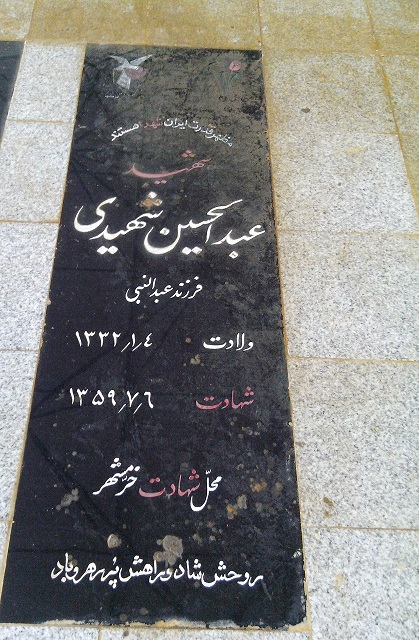 مظهر قدرت ایران شهدا هستند
شهید
عبدالحسین شهیدی
فرزند عبدالنبی
ولادت ۱۳۳۲٫۱٫۴
شهادت ۱۳۵۹٫۷٫۶
محلّ شهادت خرمشهر
روحش شاد و راهش پُر رهرو باد